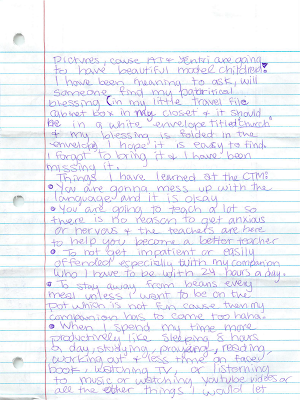 pictures, cause AJ & Jentri are going
to have beautiful model children!
I have been meaning to ask, will
someone find my patriarical
blessing (in my little travel file
cabnet box in my closet & it should
be in a white envelope titled church
& my blessing is folded in the
envelope) I hope it is easy to find.
I forgot to bring it & I have been
missing it.
Things I have learned at the CTM:
• You are gonna mess up with the
language and it is okay
• You are going to teach a lot so
there is no reason to get anxious
or nervous & the teachers are here
to help you become a better teacher
• To not get impatient or easily
offended especially with my companion
who I have to be with 24 hours a day.
• To stay away from beans every
meal unless I want to be on the
pot which is not fun cause then my
companion has to come too haha.
• When I spend my time more
productively like sleeping 8 hours
a day, studying, praying, reading
working out & less time on face
book, watching TV, or listening
to music or watching youtube videos or
all the other things I would let